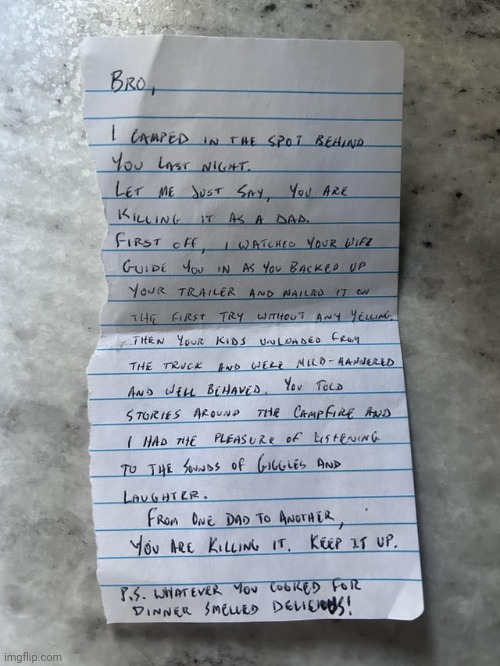 BRO,
I CAMPED IN THE SPOT BEHIND
YOU LAST NIGHT.
LET ME JUST SAY, YOU ARE
KILLING IT AS A DAD.
FIRST OFF, I WATCHED YOUR WIFE
GUIDE YOU IN AS YOU BACKED UP
YOUR TRAILER AND NAILED IT ON
THE FIRST TRY WITHOUT ANY YELLING.
THEN YOUR KIDS UNLOADED FROM
THE TRUCK AND WERE MILD-MANNERED
AND WELL BEHAVED. YOU TOLD
STORIES AROUND THE CAMPFIRE AND
I HAD THE PLEASURE OF LISTENING
TO THE SOUNDS OF GIGGLES AND
LAUGHTER.
FROM ONE DAD TO ANOTHER,
YOU ARE KILLING IT. KEEP IT UP.
P.S. WHATEVER YOU COOKED FOR
DINNER SMELLED DELICIOUS!
imgflip.com